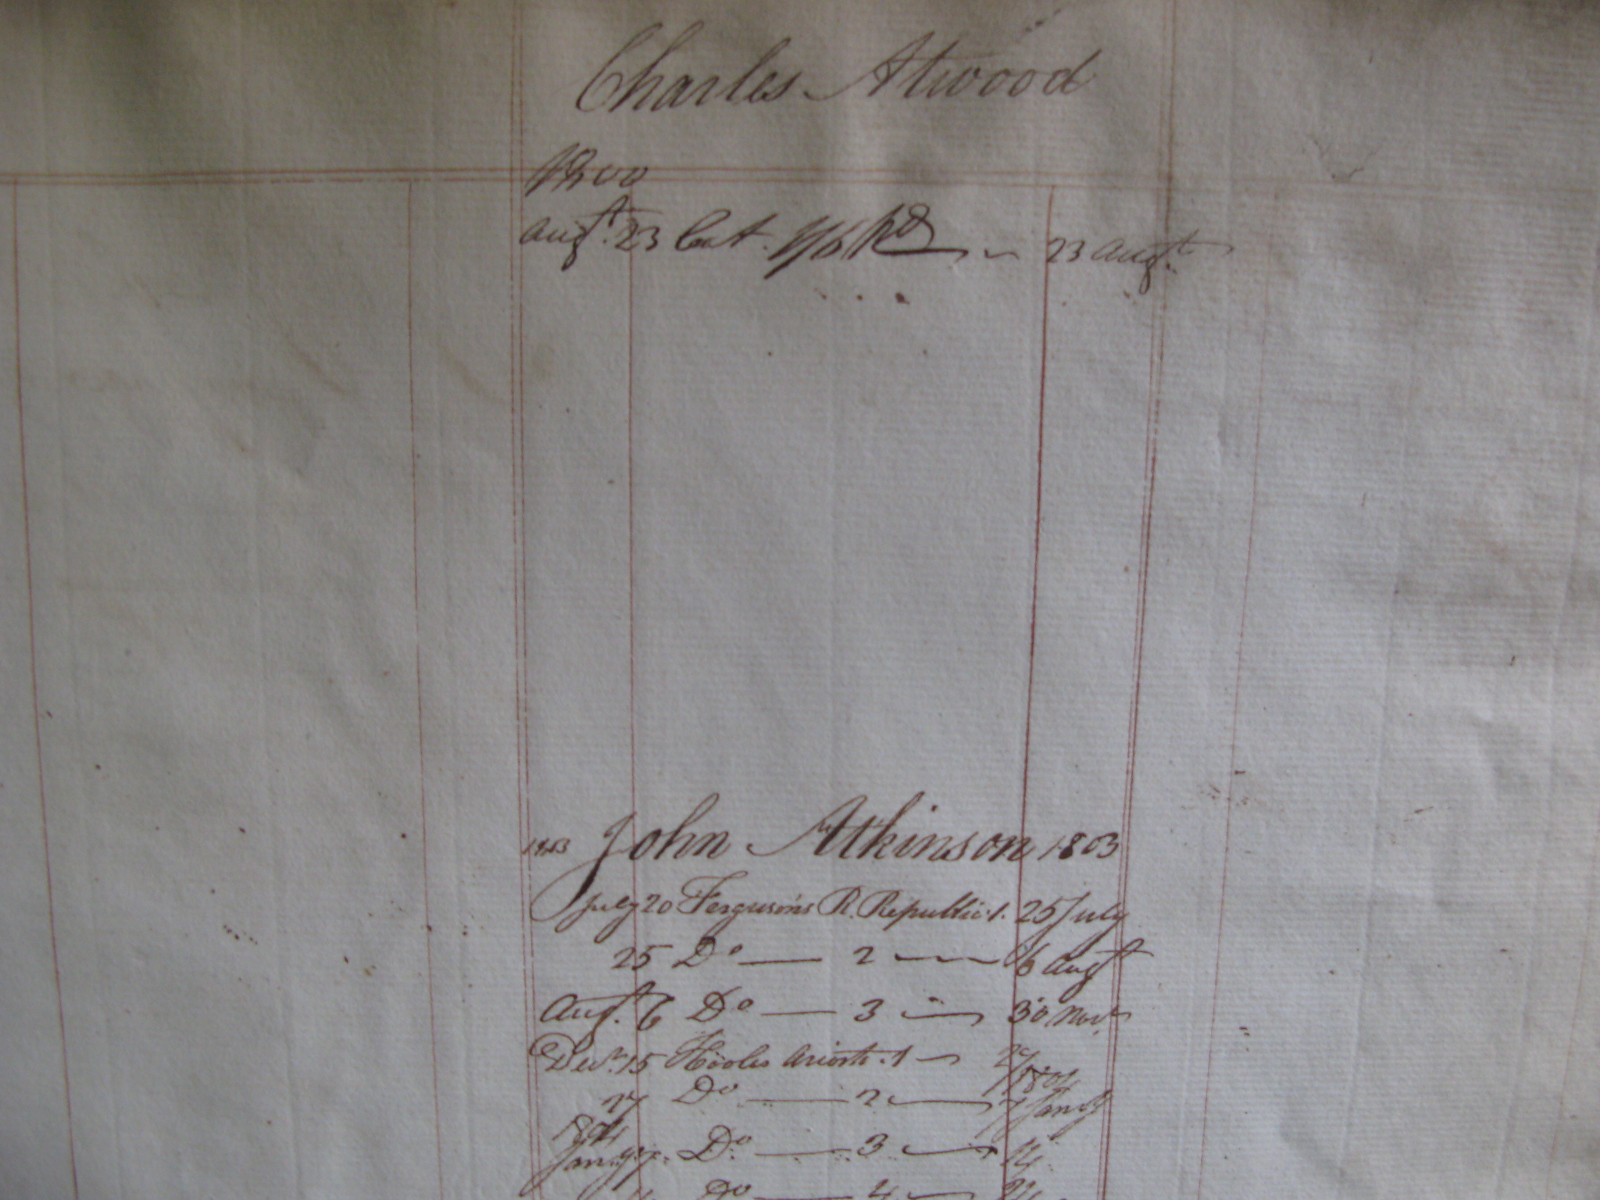 Charles Atwood
1800
Augt. 23 Cat. 23 Augt.
1803 John Atkinson 1803
July 20 Ferguson's R. Republic. 1. 25 July
25 Do — 2 — 6 Augt
Augt. 6 Do — 3 — 30 Novr
Decr. 15 Hooles Ariosto. 1 —
27 Do — 2 — 7 Jany
1804
Jany 7. Do — 3 — 14
Do — 4